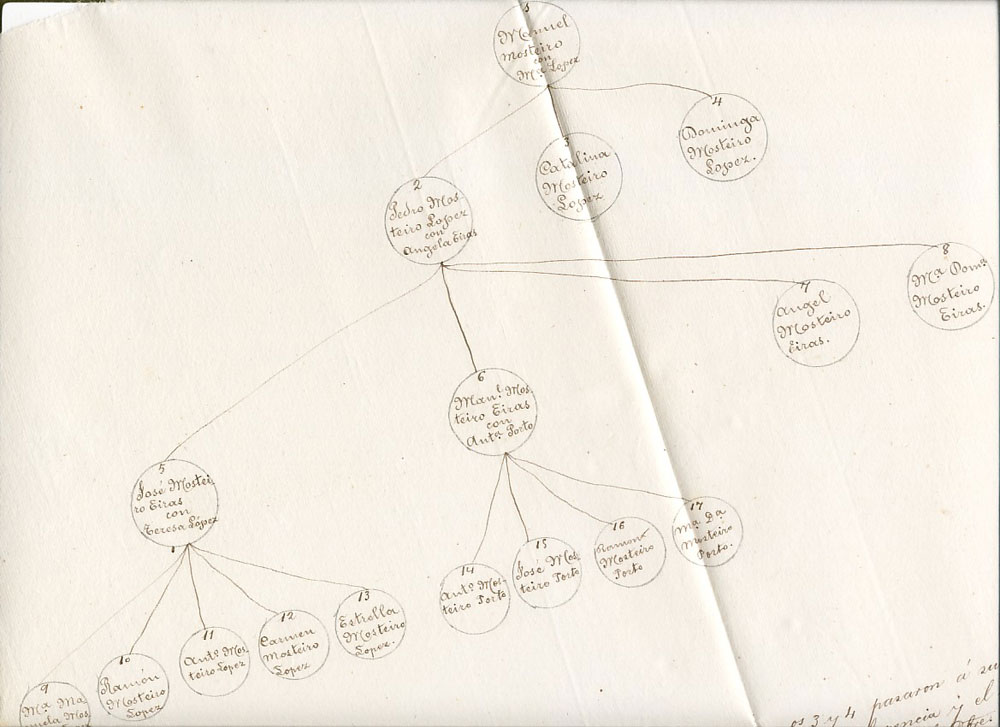 1
Manuel
Mosteiro
con
Mª Lopez
4
Dominga
Mosteiro
Lopez.
3
Catalina
Mosteiro
Lopez
2
Pedro Mos-
teiro Lopez
con
Angela Eiras
8
Mª Domª
Mosteiro
Eiras.
7
Angel
Mosteiro
Eiras.
6
Manl. Mos-
teiro Eiras
con
Antª Porto
5
José Mostei
ro Eiras
con
Teresa López
17
Mª Dª
Mosteiro
Porto.
16
Ramona
Mosteiro
Porto
15
José Mos
teiro Porto
14
Antº Mos-
teiro Porto
13
Estrella
Mosteiro
Lopez.
12
Carmen
Mosteiro
Lopez
11
Antº Mos
teiro Lopez
10
Ramón
Mosteiro
Lopez
9
Mª Ma
nuela Mos
Lopez
os 3 y 4 pasaron á su
herencia y el